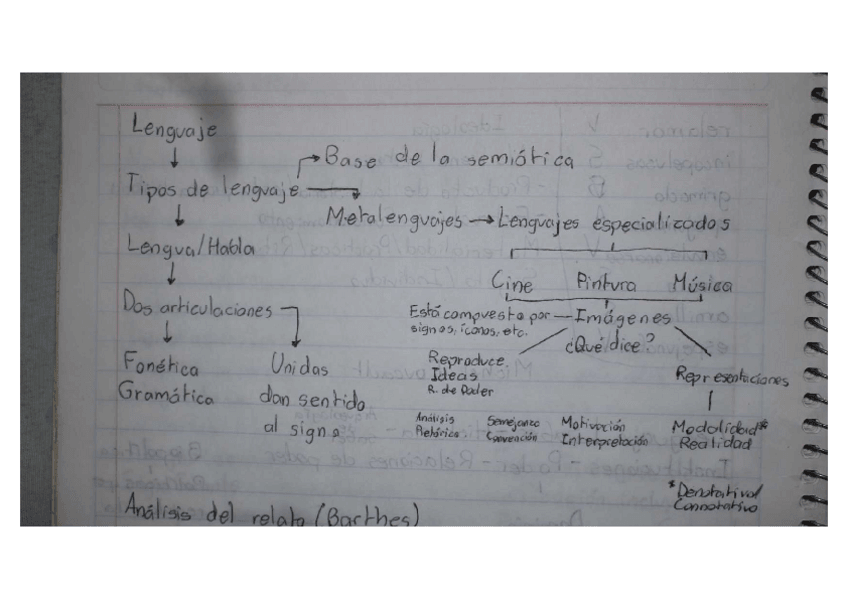 Lenguaje
Base de la semiótica
Tipos de lenguaje
Metalenguajes → Lenguajes especializados
Lengua/Habla
Cine Pintura Música
Dos articulaciones
Está compuesta por
signos, íconos, etc.
Imágenes
¿Qué dice?
Fonética
Gramática
Unidas
dan sentido
al signo
Reproduce
Ideas
R. de Poder
Representaciones
Análisis
Retórico
Semejanza
Convención
Motivación
Interpretación
Modalidad*
Realidad
*Denotativo/
Connotativo
Análisis del relato (Barthes)